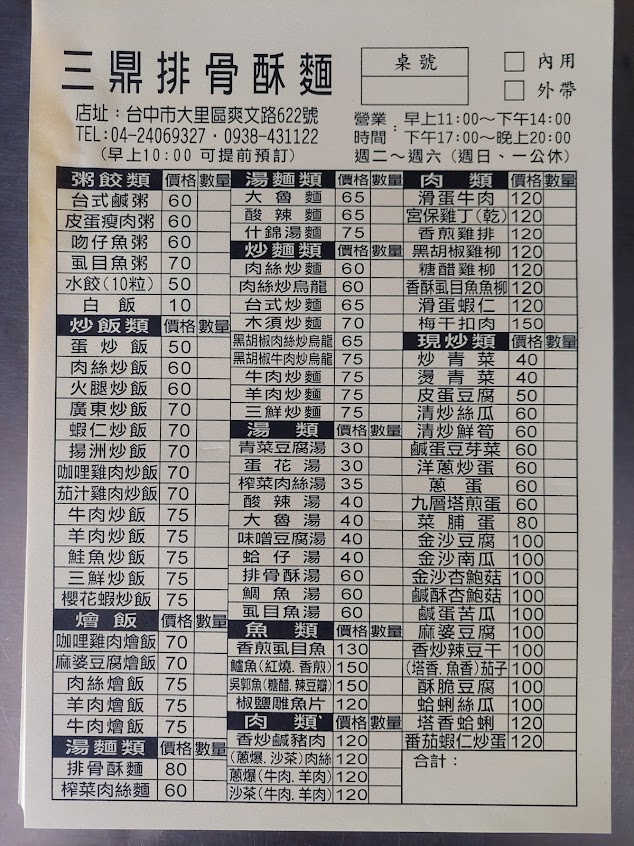 三鼎排骨酥麵
桌號
內用
外帶
店址：台中市大里區爽文路622號
TEL:04-24069327．0938-431122
(早上10:00 可提前預訂)
營業時間：早上11:00～下午14:00
下午17:00～晚上20:00
週二～週六（週日、一公休）
粥餃類 價格 數量
台式鹹粥 60
皮蛋瘦肉粥 60
吻仔魚粥 60
虱目魚粥 70
水餃(10粒) 50
白飯 10
炒飯類 價格 數量
蛋炒飯 50
肉絲炒飯 60
火腿炒飯 60
廣東炒飯 70
蝦仁炒飯 70
揚洲炒飯 70
咖哩雞肉炒飯 70
茄汁雞肉炒飯 70
牛肉炒飯 75
羊肉炒飯 75
鮭魚炒飯 75
三鮮炒飯 75
櫻花蝦炒飯 75
燴飯 價格 數量
咖哩雞肉燴飯 70
麻婆豆腐燴飯 70
肉絲燴飯 75
羊肉燴飯 75
牛肉燴飯 75
湯麵類 價格 數量
排骨酥麵 80
榨菜肉絲麵 60
湯麵類 價格 數量
大魯麵 65
酸辣麵 65
什錦湯麵 75
炒麵類 價格 數量
肉絲炒麵 60
肉絲炒烏龍 60
台式炒麵 65
木須炒麵 70
黑胡椒肉絲炒烏龍 65
黑胡椒牛肉炒烏龍 75
牛肉炒麵 75
羊肉炒麵 75
三鮮炒麵 75
湯類 價格 數量
青菜豆腐湯 30
蛋花湯 30
榨菜肉絲湯 35
酸辣湯 40
大魯湯 40
味噌豆腐湯 40
蛤仔湯 40
排骨酥湯 60
鯛魚湯 60
虱目魚湯 60
魚類 價格 數量
香煎虱目魚 130
鱸魚(紅燒.香煎) 150
吳郭魚(糖醋.辣豆瓣) 150
椒鹽雕魚片 120
肉類 價格 數量
香炒鹹豬肉 120
(蔥爆.沙茶)肉絲 120
蔥爆(牛肉.羊肉) 120
沙茶(牛肉.羊肉) 120
肉類 價格 數量
滑蛋牛肉 120
宮保雞丁(乾) 120
香煎雞排 120
黑胡椒雞柳 120
糖醋雞柳 120
香酥虱目魚魚柳 120
滑蛋蝦仁 120
梅干扣肉 150
現炒類 價格 數量
炒青菜 40
燙青菜 40
皮蛋豆腐 50
清炒絲瓜 60
清炒鮮筍 60
鹹蛋豆芽菜 60
洋蔥炒蛋 60
蔥蛋 60
九層塔煎蛋 60
菜脯蛋 80
金沙豆腐 100
金沙南瓜 100
金沙杏鮑菇 100
鹹酥杏鮑菇 100
鹹蛋苦瓜 100
麻婆豆腐 100
香炒辣豆干 100
(塔香.魚香)茄子 100
酥脆豆腐 100
蛤蜊絲瓜 100
塔香蛤蜊 120
番茄蝦仁炒蛋 120
合計：